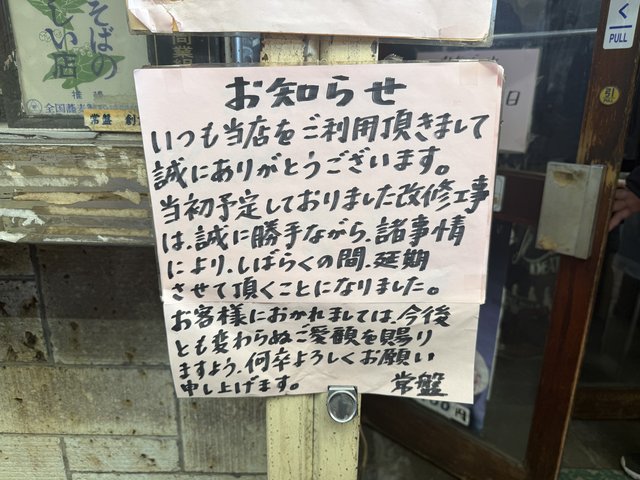 そばの
しい店
推薦
全国蕎麦
常盤
く
PULL
引
日
お知らせ
いつも当店をご利用頂きまして
誠にありがとうございます。
当初予定しておりました改修工事
は、誠に勝手ながら、諸事情
により、しばらくの間、延期
させて頂くことになりました。
お客様におかれましては、今後
とも変わらぬご愛顧を賜り
ますよう、何卒よろしくお願い
申し上げます。 常盤